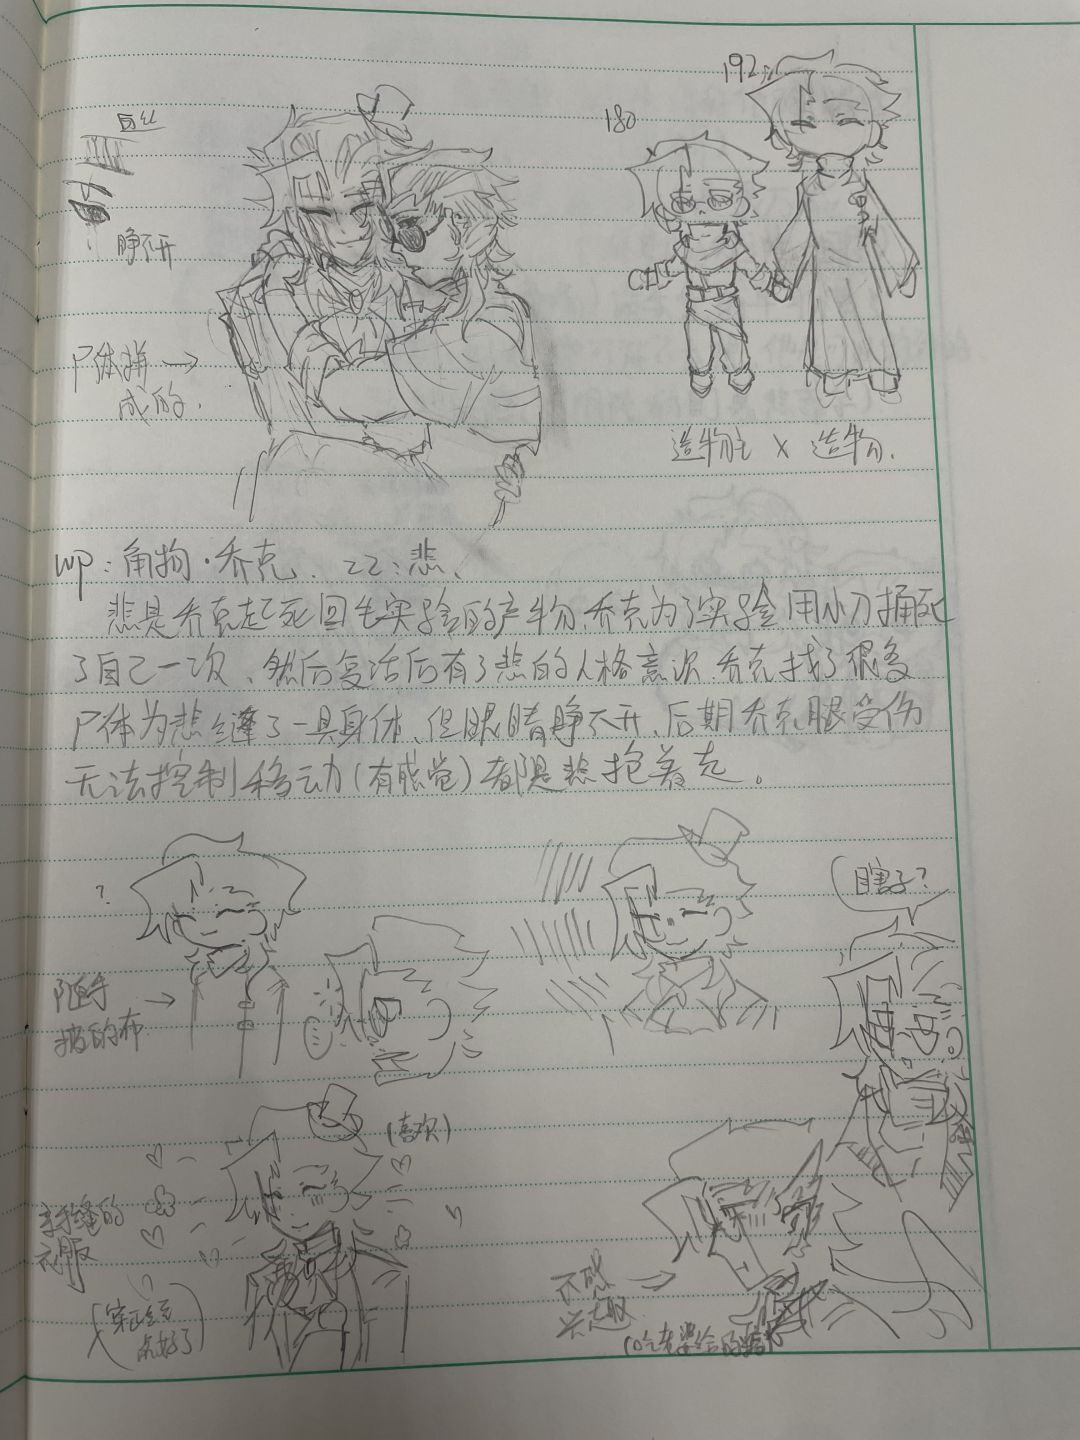 192
180
睁不开
尸体拼
成的.
造物主 X 造物.
wp: 角物·乔克. zz: 悲、
悲是乔克起死回生实验的产物.乔克为了实验用小刀捅死
了自己一次、然后复活后有了悲的人格意识.乔克找了很多
尸体为悲缝了一具身体、但眼睛睁不开、后期乔克腿受伤
无法控制移动(有感觉)都是悲抱着走。
?
瞎子?
随手
披的布
(喜欢)
手缝的
衣服
(穿正经
点好了)
不感
兴趣
(吃老婆给的糖)